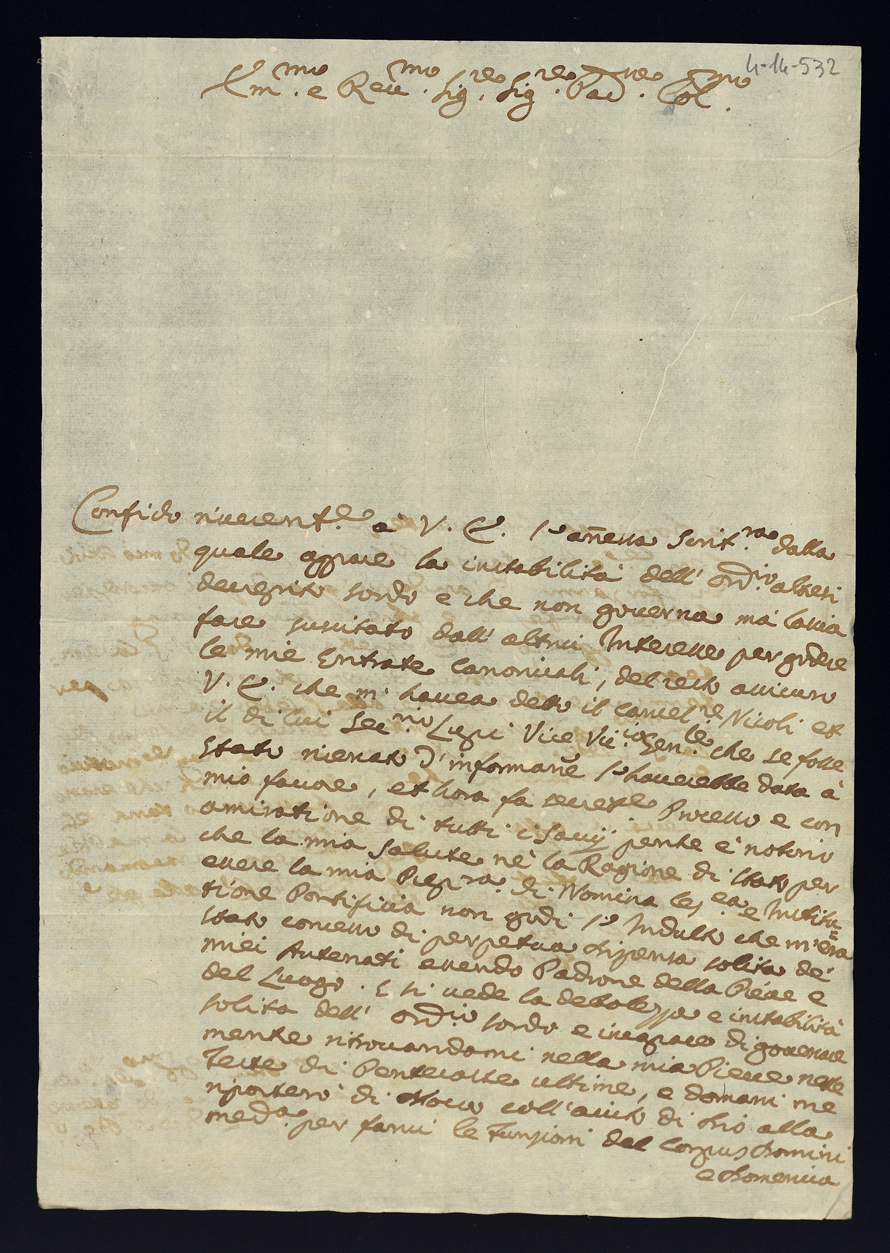 4-14-532
Em.mo e Reu.mo Sig.re Sig.re Pad.ne Col.mo
Confido riuerent.e à V. E. l'annessa Scritt.ra dalla
quale appare la instabilità dell' Ord.rio altresi
decrepito sordo e che non gouerna mà lascia
fare suscitato dall' altrui Interesse per godere
le mie Entrate Canonicali, del resto assicuro
V. E. che m' hauea detto il Cancel.re Nicoli et
il di lui Sec.rio Lupi Vice Vic.o Gen.le che se fosse
stato ricercato d' informarne l' hauerebbe data à
mio fauore, et hora fà Processo e con
amiratione di tutti i Sauij perche è notorio
che la mia Salute nè la Ragione di stato per
essere la mia di Nomina e Institu=
tione Pontificia non godi l' Indulto che m' era
stato concesso di perpetua dispensa solita de'
miei Antenati essendo Padrone della Pieue e
del Luogo. E si uede la debolezza e instabilità
solita dell' Ord.rio sordo e incapace di gouernare
mentre ritrouandomi nella mia Pieue nelle
Feste di Pentecoste ultime, e domani me
riporterò di nouo coll' aiuto di Dio alla
med.a per farui le Funsioni del Corpus Domini
e Domenica